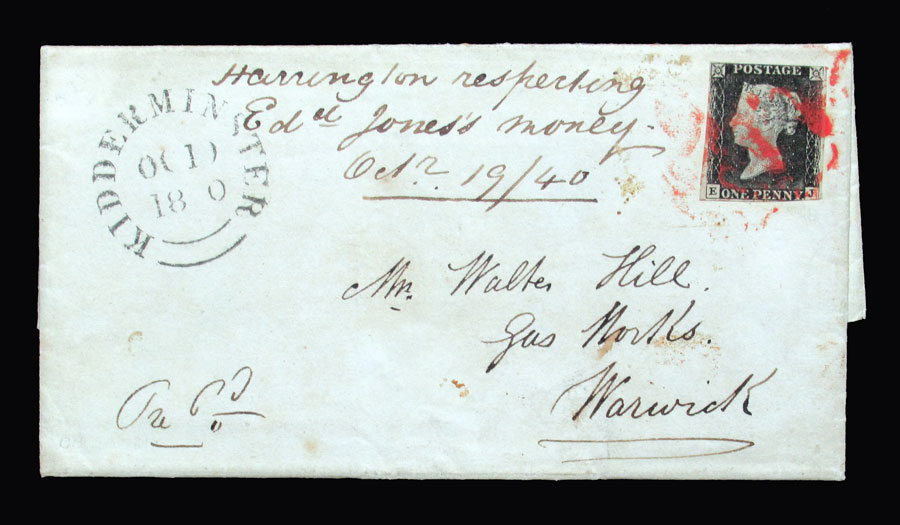 Harrington respecting
Edd Jones's money.
Octr. 19/40
KIDDERMINSTER
18 0
POSTAGE
E ONE PENNY J
Mr. Walter Hill.
Gas Works.
Warwick
Pre Pd